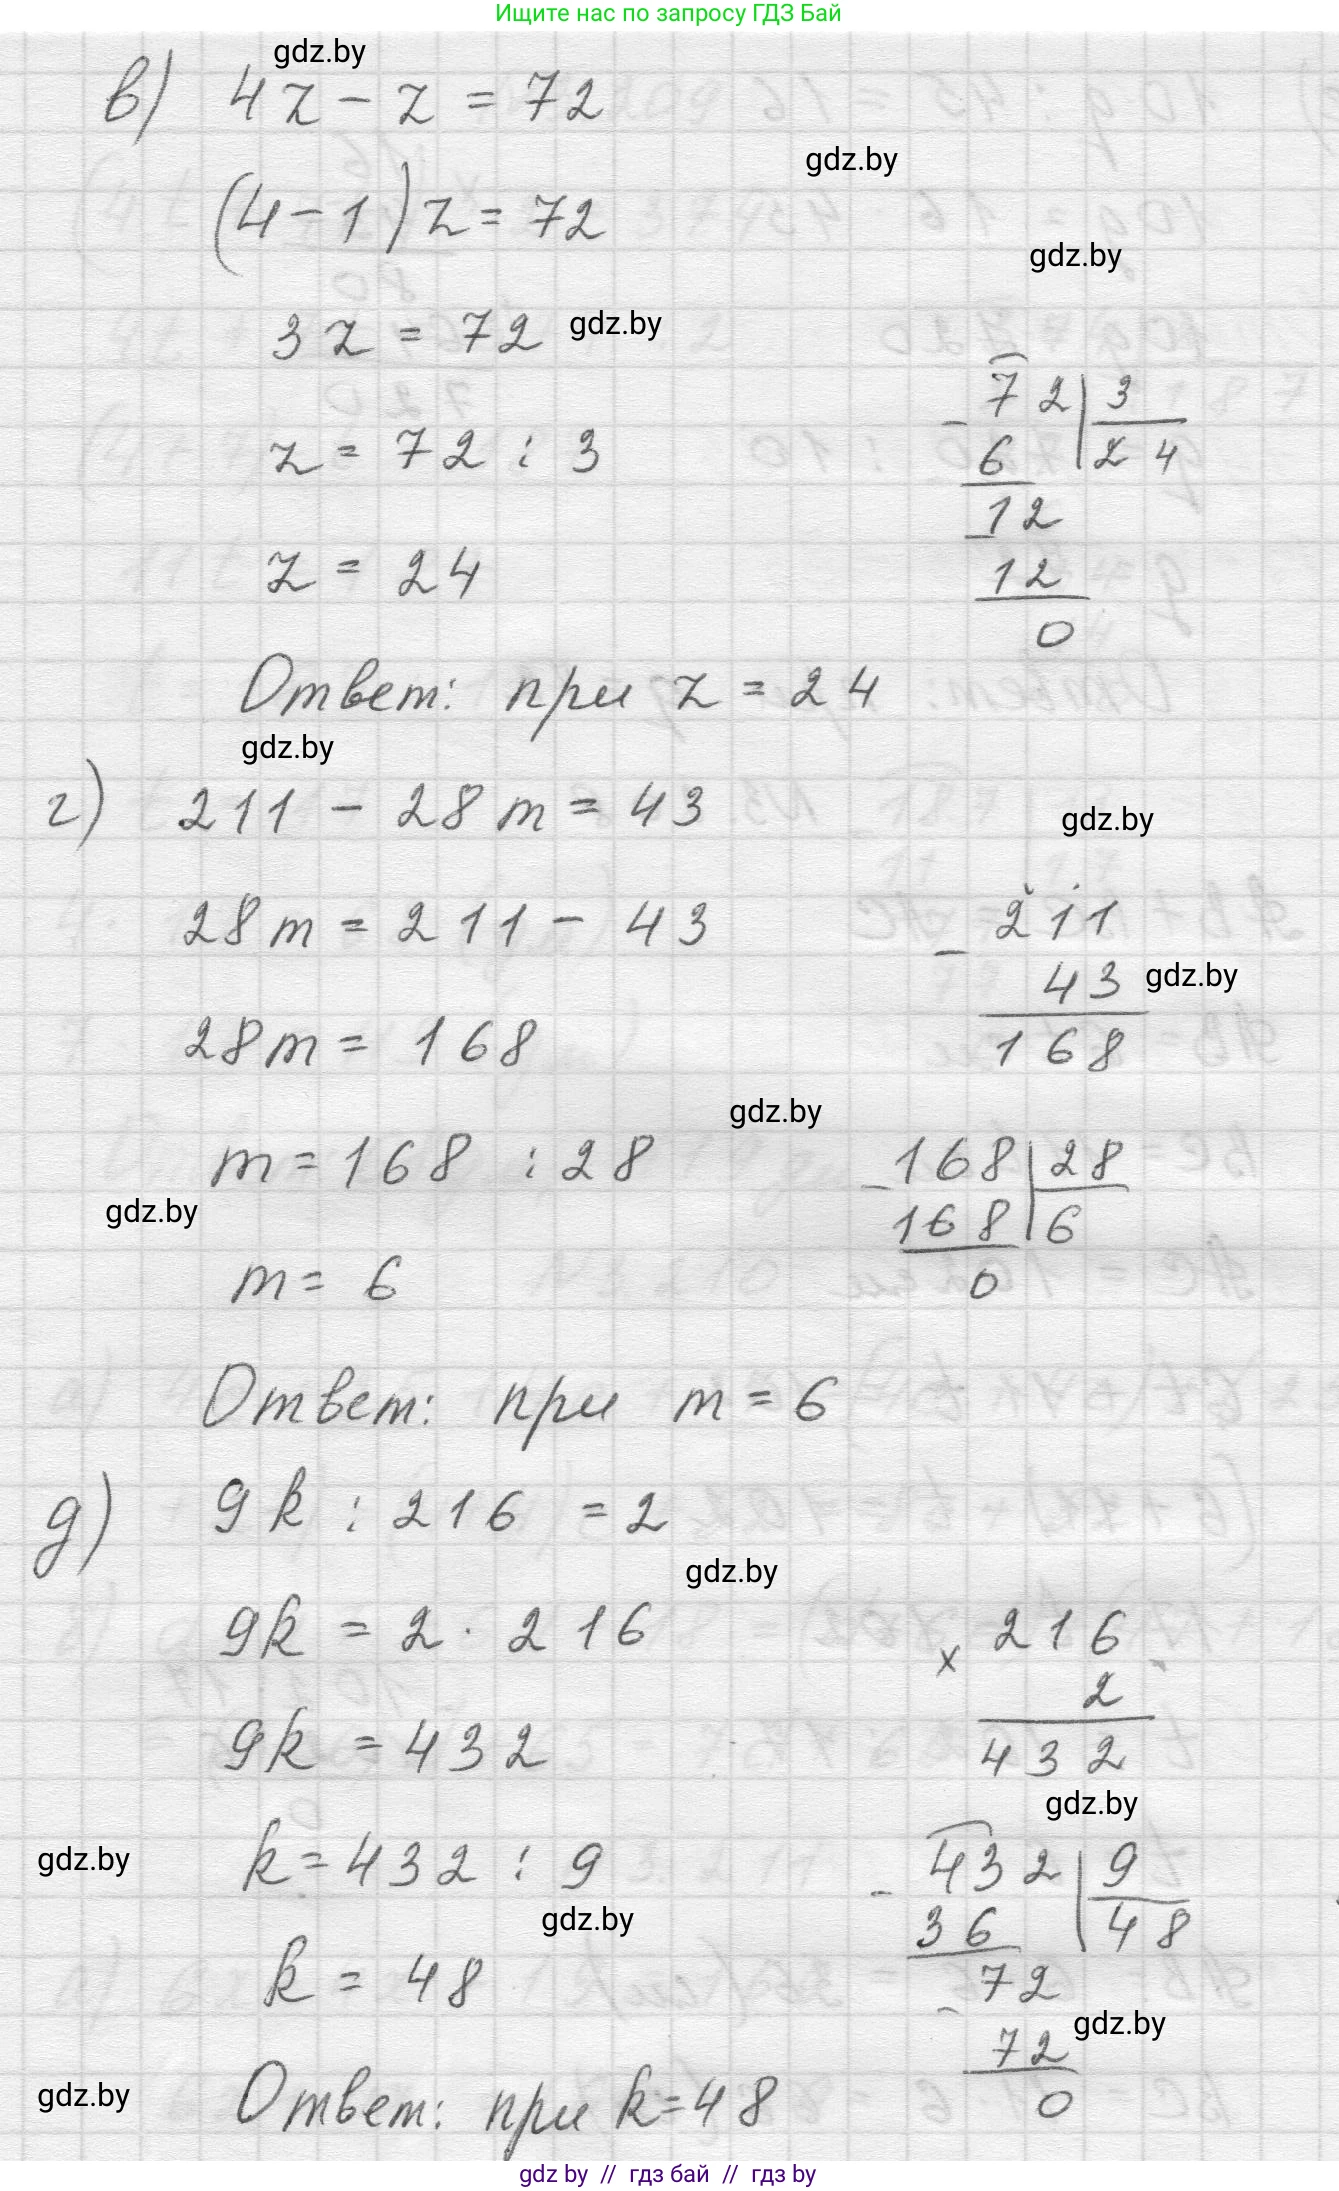 Ищите нас по запросу ГДЗ Бай
gdz.by
в) 4z - z = 72
gdz.by
(4-1)z = 72
gdz.by
3z = 72
gdz.by
z = 72 : 3
z = 24
- 72 | 3
6 | 24
- 12
12
0
Ответ: при z = 24
gdz.by
г) 211 - 28m = 43
gdz.by
28m = 211 - 43
28m = 168
- 211
43
gdz.by
168
gdz.by
m = 168 : 28
gdz.by
m = 6
- 168 | 28
168 | 6
0
Ответ: при m = 6
д) 9k : 216 = 2
gdz.by
9k = 2 · 216
9k = 432
x 216
2
432
gdz.by
gdz.by
k = 432 : 9
gdz.by
k = 48
- 432 | 9
36 | 48
- 72
gdz.by
72
0
gdz.by
Ответ: при k = 48
gdz by // гдз бай // гдз by